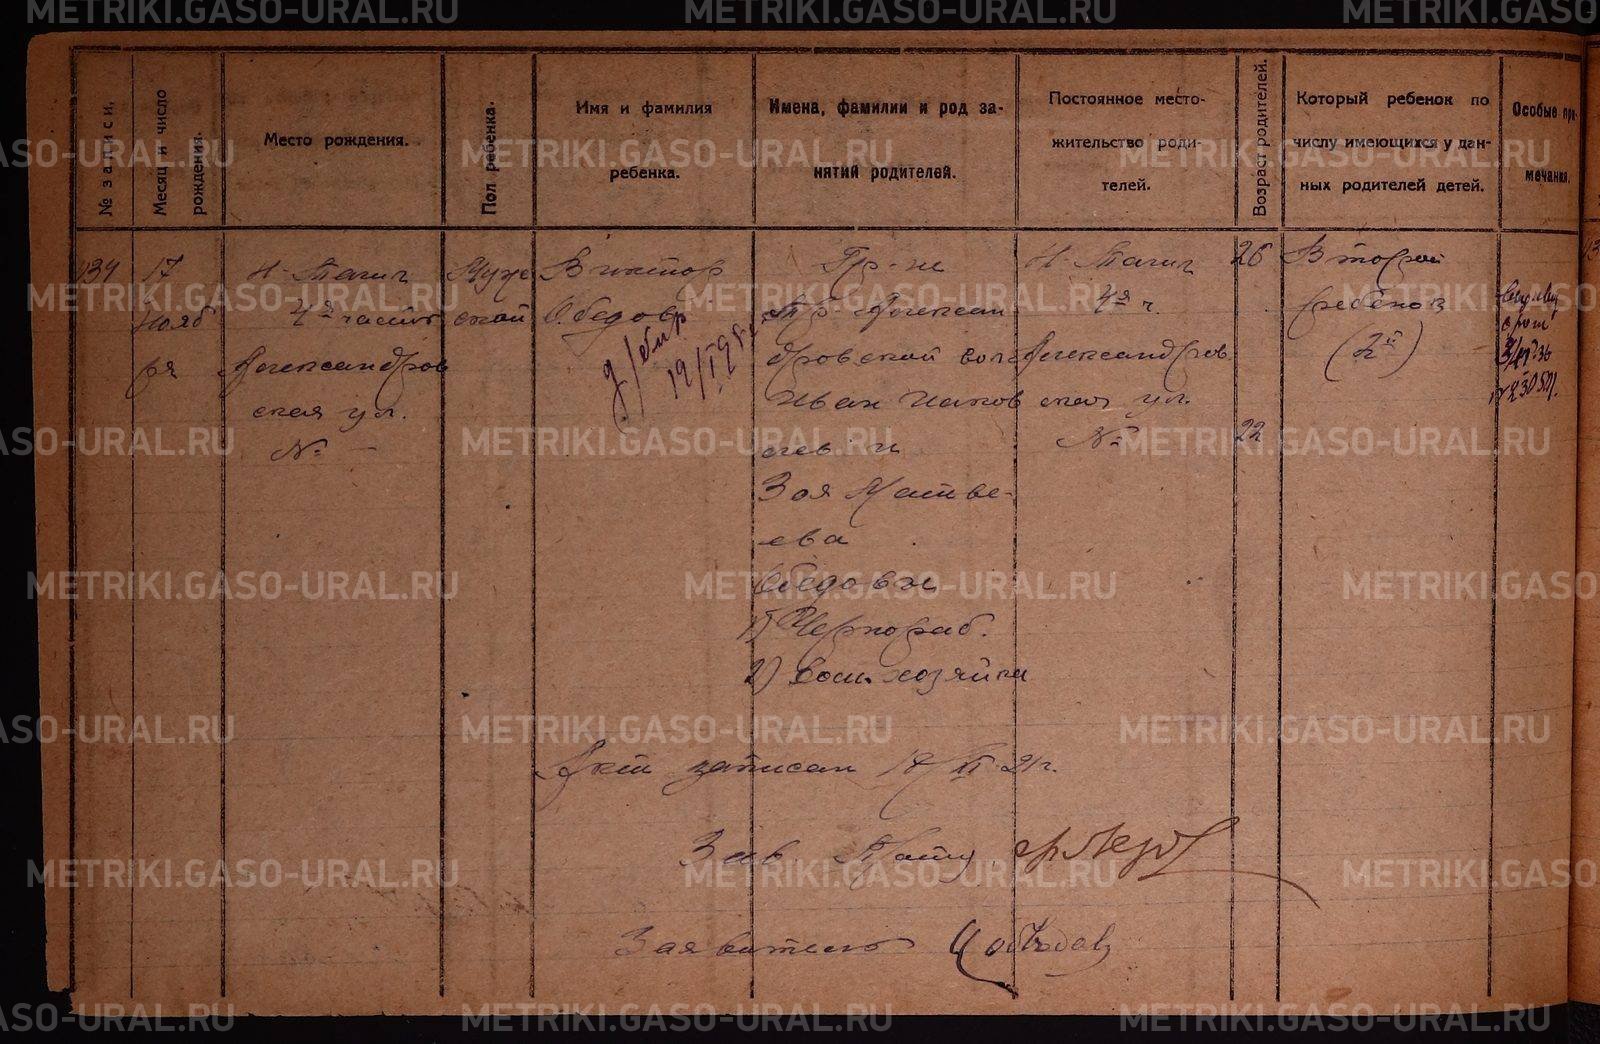 METRIKI.GASO-URAL.RU
№ записи.
Месяц и число
рождения.
Место рождения.
Пол ребенка.
Имя и фамилия
ребенка.
Имена, фамилии и род за-
нятий родителей.
Постоянное место-
жительство роди-
телей.
Возраст родителей.
Который ребенок по
числу имеющихся у дан-
ных родителей детей.
Особые при-
мечания.
434
17
Нояб
ря
Н-Тагил
4я часть
Александров
ская ул.
№ -
Муж
ской
Виктор
Обедов
Гр-не
Гр. Алексан
дровской вол.
Иван Иаков
лев и
Зоя Матве-
ева
Обедовы
1) Чернораб.
2) дом. хозяйка
Н-Тагил
4я ч.
Александров
ская ул.
№
26
22
Второй
ребенок
(2й)
Акт записан 17/XI-21г.
Зав
Заявитель